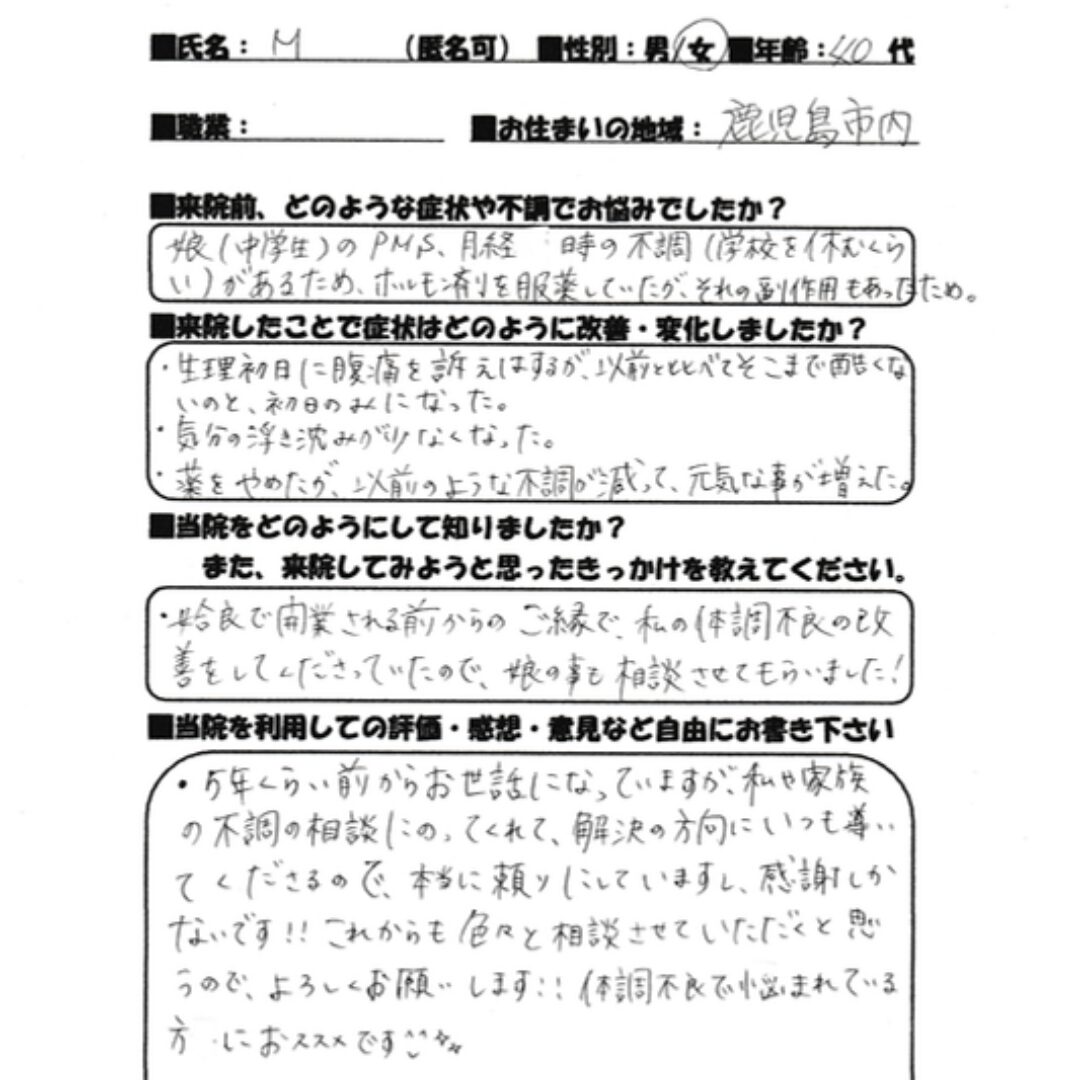 ■氏名： M （匿名可） ■性別：男/女 ■年齢：40 代
■職業： ■お住まいの地域： 鹿児島市内
■来院前、どのような症状や不調でお悩みでしたか？
娘（中学生）のPMS、月経 時の不調（学校を休むくら
い）があるため、ホルモン剤を服薬していたが、それの副作用もあったため。
■来院したことで症状はどのように改善・変化しましたか？
・生理初日に腹痛を訴えはするが、以前とくらべてそこまで酷くな
いのと、初日のみになった。
・気分の浮き沈みが少なくなった。
・薬をやめたが、以前のような不調が減って、元気な事が増えた。
■当院をどのようにして知りましたか？
また、来院してみようと思ったきっかけを教えてください。
・姶良で開業される前からのご縁で、私の体調不良の改
善をしてくださっていたので、娘の事も相談させてもらいました！
■当院を利用しての評価・感想・意見など自由にお書き下さい
・5年くらい前からお世話になっていますが、私や家族
の不調の相談にのってくれて、解決の方向にいつも導い
てくださるので、本当に頼りにしていますし、感謝しか
ないです!! これからも色々と相談させていただくと思
うので、よろしくお願いします!! 体調不良で悩まれている
方 におススメです